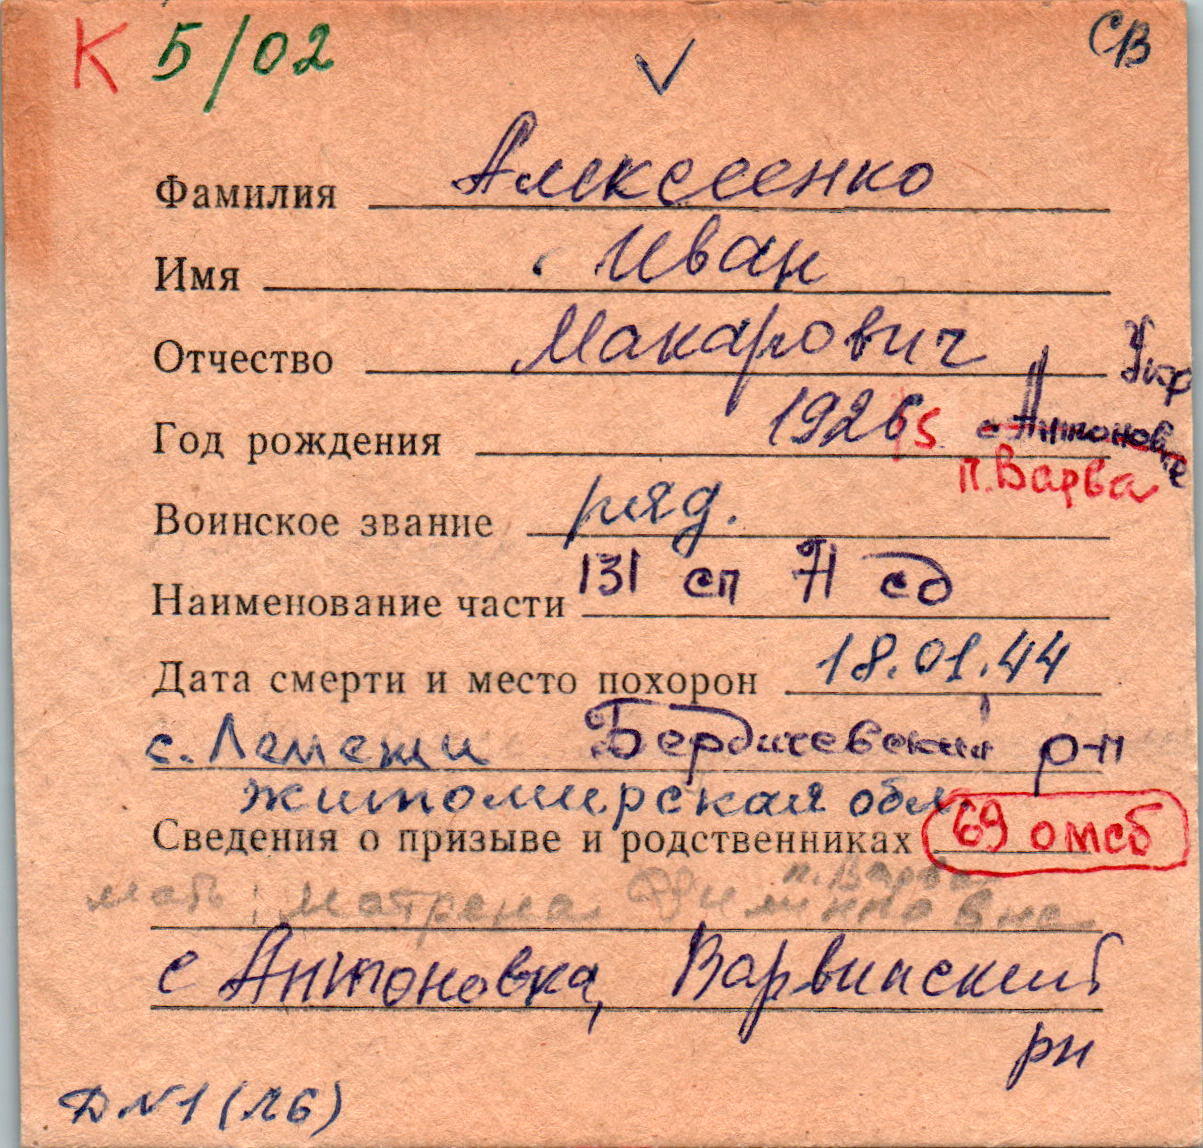 К 5/02 ✓ СВ
Фамилия Алексеенко
Имя Иван
Отчество Макарович Укр
Год рождения 1926 5 с Антоновка
п. Варва
Воинское звание ряд.
Наименование части 131 сп 71 сд
Дата смерти и место похорон 18.01.44
с. Лемеши Бердичевский р-н
Житомирская обл.
Сведения о призыве и родственниках 69 омсб
п. Варва
мать: Матрена Филипповна
с Антоновка, Варвинский
рн
Д N 1 (Л6)